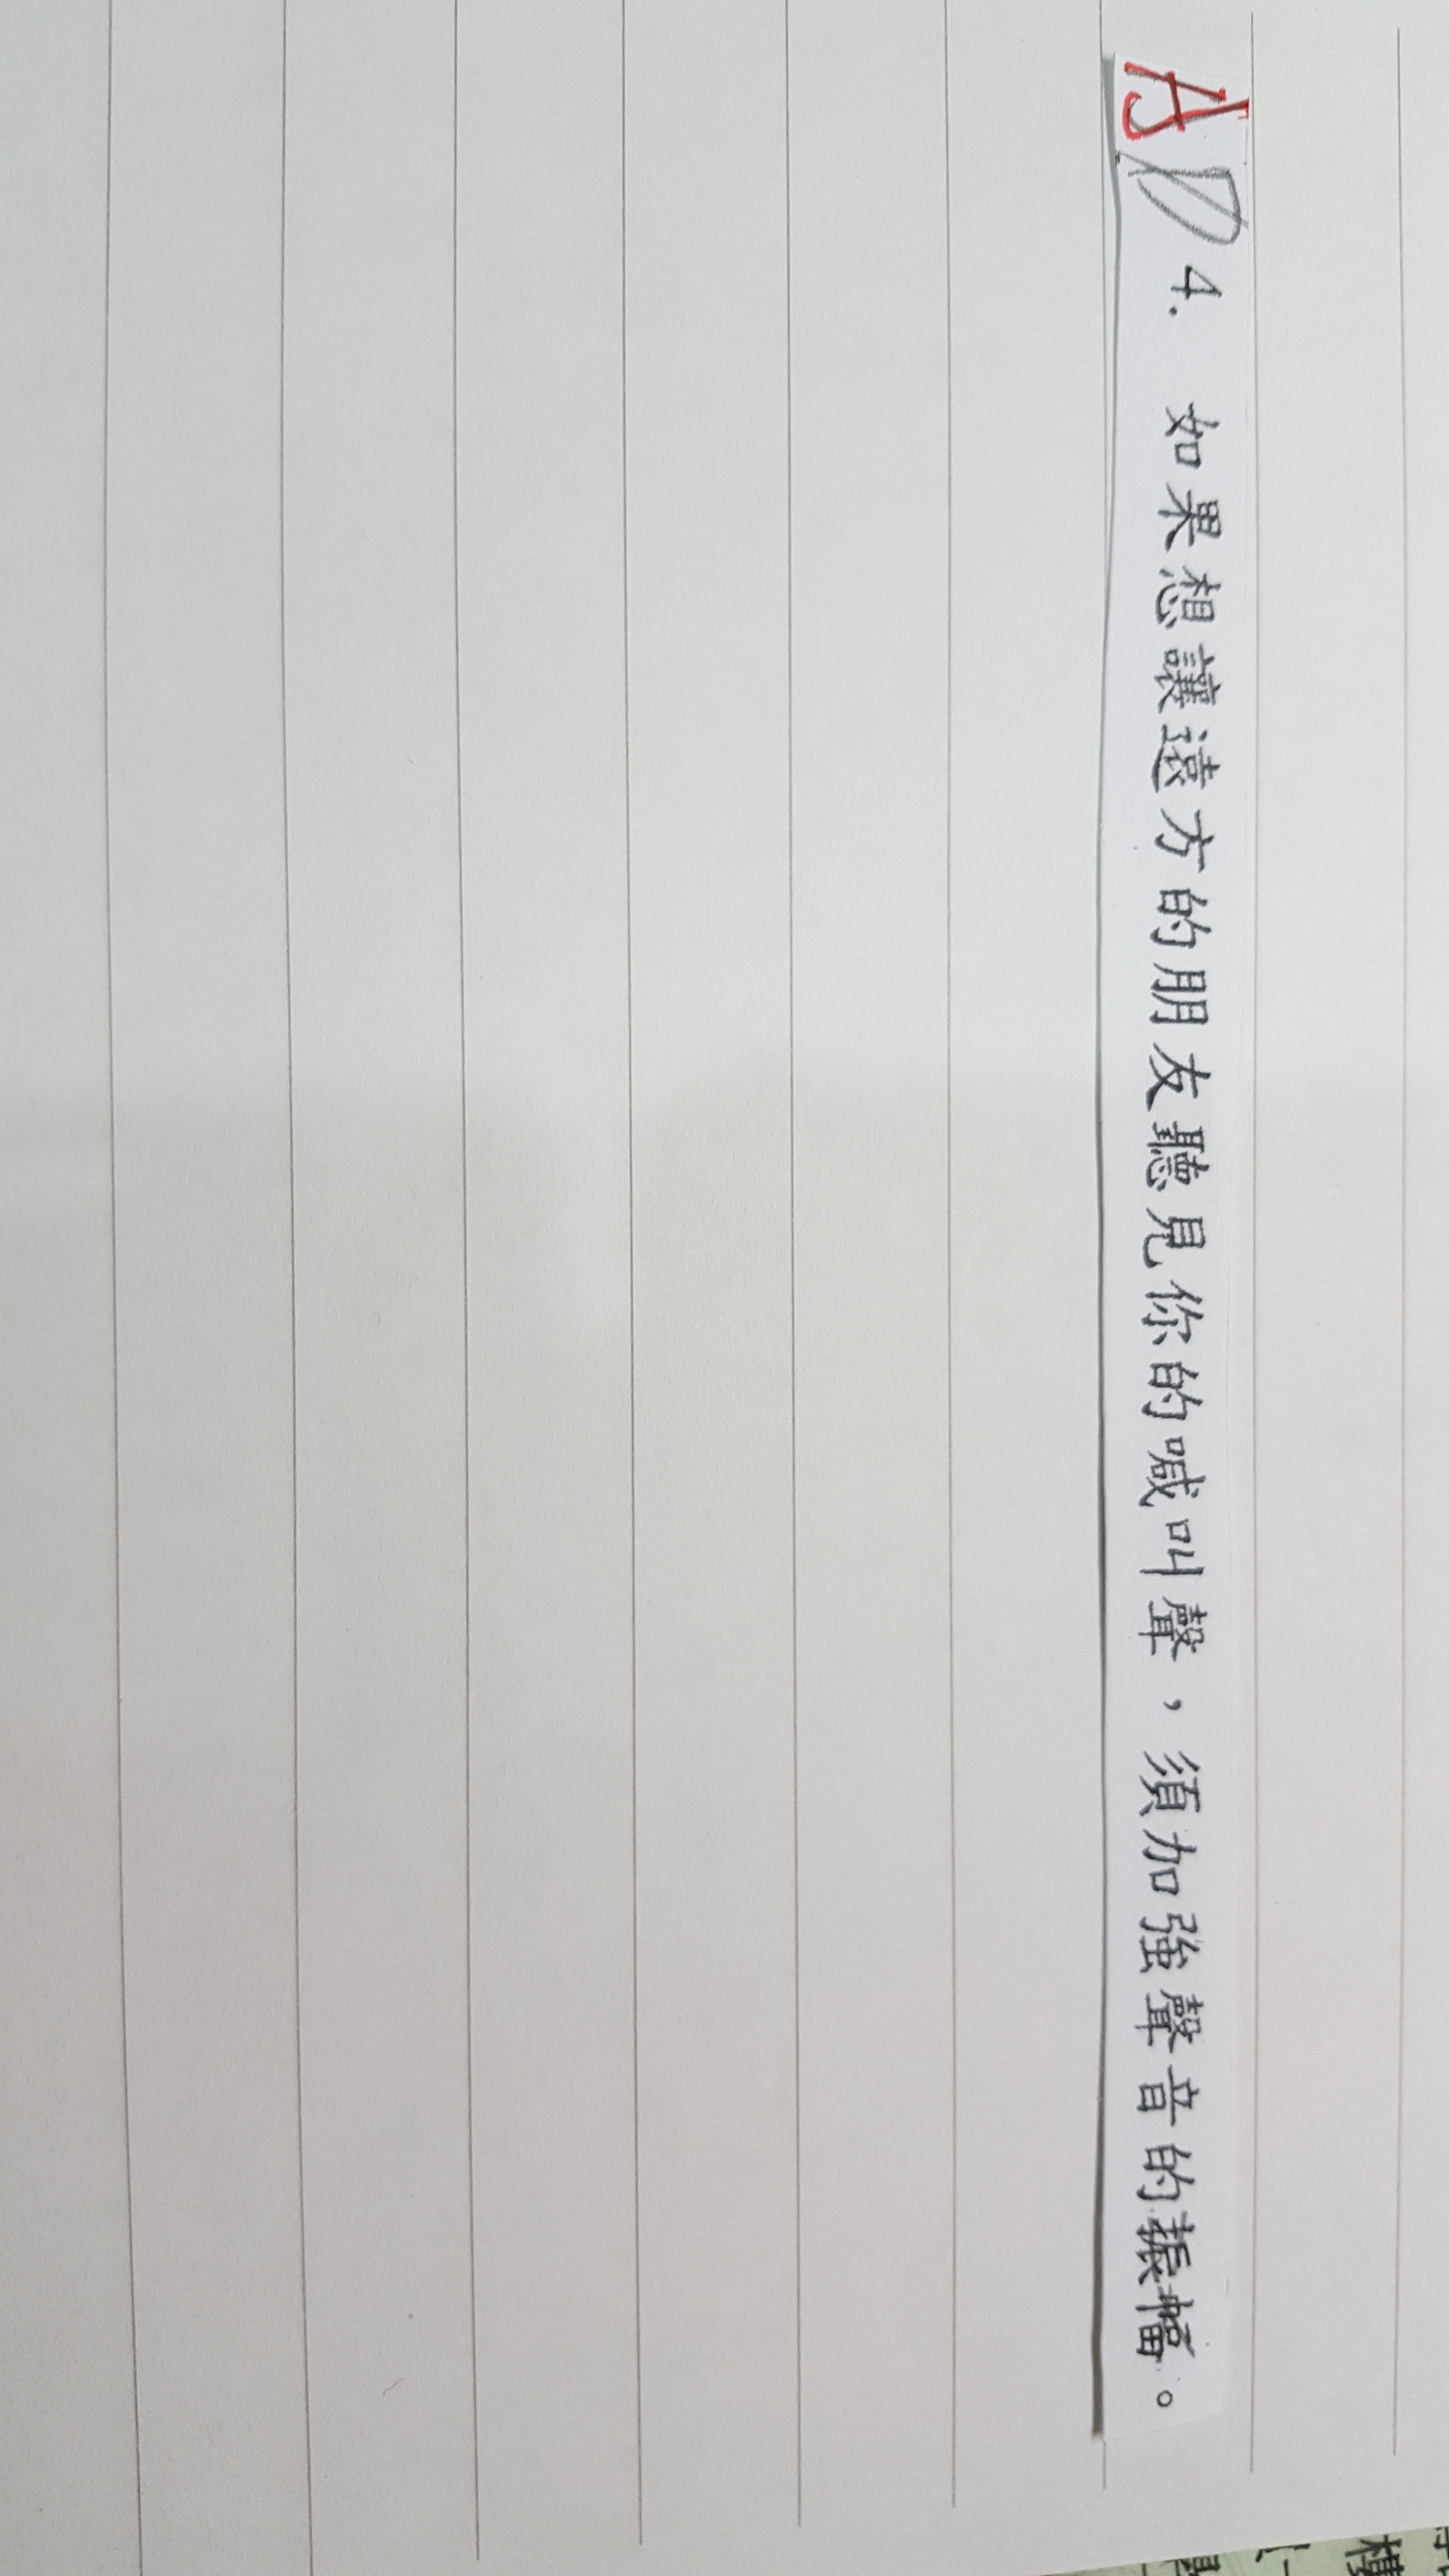 A D 4. 如果想讓遠方的朋友聽見你的喊叫聲，須加強聲音的振幅。